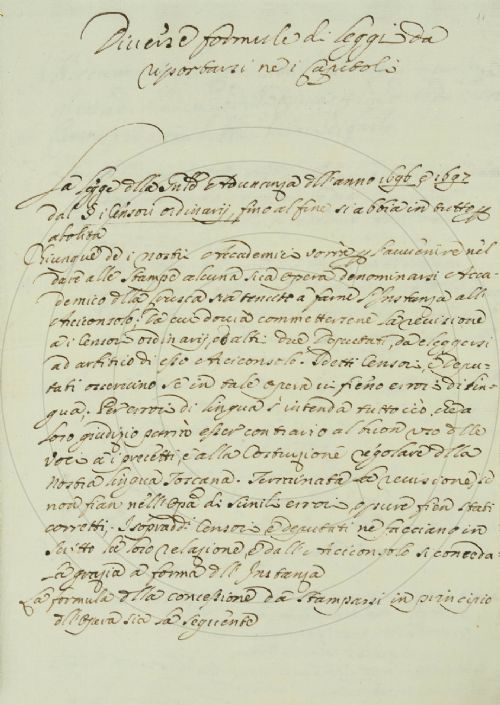 Diverse formule di leggi da
riportarsi ne i Capitoli
La legge della Adunanza dell'anno 1696 e 1697
dal § i Censori ordinarij, fino al fine si abbia in tutto
abolita
Chiunque de i nostri Accademici vorrà nel
dare alle stampe alcuna sua opera denominarsi Acca-
demico della Crusca sia tenuto a farne l'Instanza all'
Arciconsolo; La cui dovrà commetterne la revisione
a i Censori ordinarij, o altri due Deputati, da eleggersi
ad arbitrio di esso Arciconsolo. I detti Censori, e Depu-
tati osservino se in tale opera vi sieno errori di lin-
gua; Per errori di lingua s'intenda tutto ciò, che a
loro giudizio potrà esser contrario al buon uso delle
voci a i precetti, e alla Costruzione regolare della
nostra lingua Toscana. Terminata la revisione, se
non sian nell'Opera di simili errori, o pure sien stati
corretti. I sopradi Censori e deputati ne facciano in
scritto la loro relazione e dall'Arciconsolo si conceda
la grazia a forma dell'Instanza
La formula della concessione da stamparsi in principio
dell'Opera sia la seguente